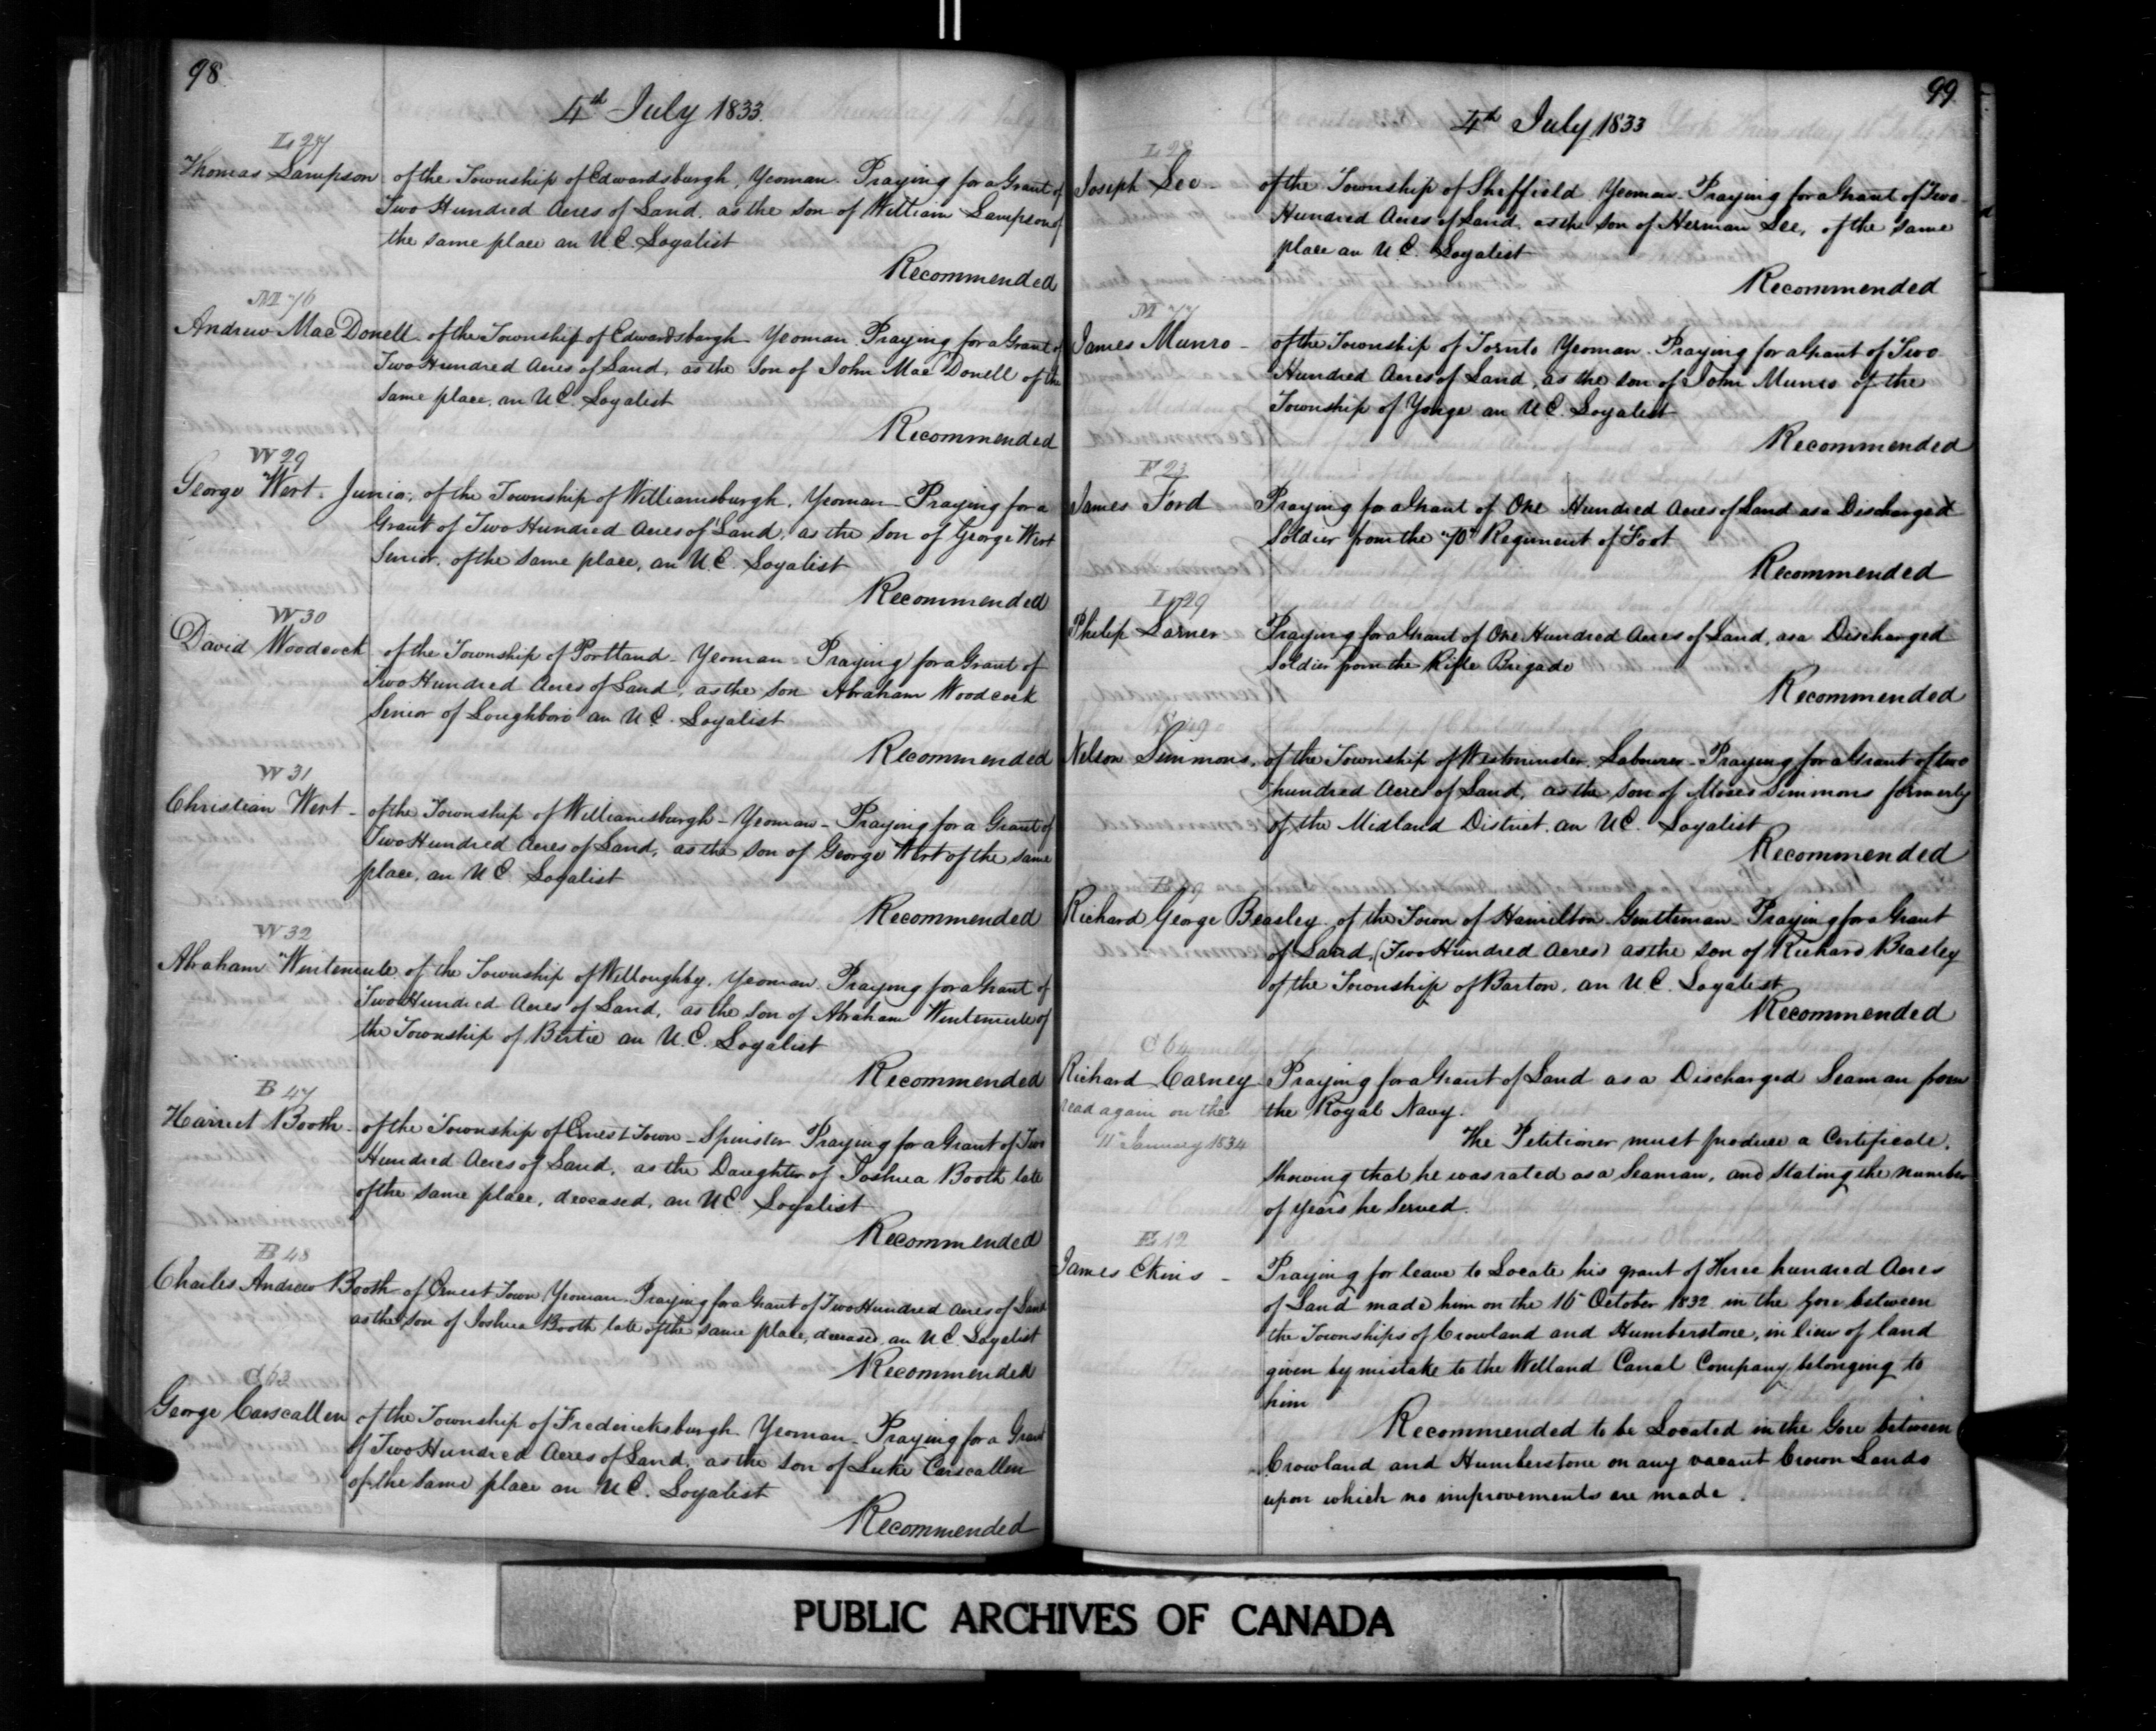 98
4th July 1833.
L 27
Thomas Sampson of the Township of Edwardsburgh, Yeoman. Praying for a Grant of
Two Hundred Acres of Land, as the Son of William Sampson of
the same place an U.E. Loyalist
Recommended
M 76
Andrew MacDonell of the Township of Edwardsburgh Yeoman. Praying for a Grant of
Two Hundred Acres of Land, as the Son of John MacDonell of the
same place, an U.E. Loyalist
Recommended
W 29
George Wert Junior, of the Township of Williamsburgh, Yeoman Praying for a
Grant of Two Hundred Acres of Land, as the Son of George Wert
Senior, of the same place, an U.E. Loyalist
Recommended
W 30
David Woodcock of the Township of Portland Yeoman Praying for a Grant of
Two Hundred Acres of Land, as the Son Abraham Woodcock
Senior of Loughboro an U.E. Loyalist
Recommended
W 31
Christian Wert - of the Township of Williamsburgh - Yeoman - Praying for a Grant of
Two Hundred Acres of Land, as the Son of George Wert of the same
place, an U.E. Loyalist
Recommended
W 32
Abraham Wintemute of the Township of Willoughby, Yeoman. Praying for a Grant of
Two Hundred Acres of Land, as the Son of Abraham Wintemute of
the Township of Bertie an U.E. Loyalist
Recommended
B 47
Harriet Booth - of the Township of Ernest Town - Spinster Praying for a Grant of Two
Hundred Acres of Land, as the Daughter of Joshua Booth late
of the same place, deceased, an U.E. Loyalist
Recommended
B 48
Charles Andrew Booth of Ernest Town Yeoman. Praying for a Grant of Two Hundred Acres of Land
as the Son of Joshua Booth late of the same place, deceased, an U.E. Loyalist
Recommended
C 63
George Carscallen of the Township of Fredericksburgh Yeoman - Praying for a Grant
of Two Hundred Acres of Land, as the Son of Luke Carscallen
of the same place an U.E. Loyalist
Recommended
99
4th July 1833
L 28
Joseph Lee - of the Township of Sheffield Yeoman. Praying for a Grant of Two
Hundred Acres of Land, as the Son of Herman Lee, of the same
place an U.E. Loyalist
Recommended
M 77
James Munro - of the Township of Toronto Yeoman. Praying for a Grant of Two
Hundred Acres of Land, as the son of John Munro of the
Township of Yonge an U.E. Loyalist
Recommended
F 23
James Ford Praying for a Grant of One Hundred Acres of Land as a Discharged
Soldier from the 70th Regiment of Foot
Recommended
L 29
Philip Larner Praying for a Grant of One Hundred Acres of Land, as a Discharged
Soldier from the Rifle Brigade
Recommended
Nelson Simmons, of the Township of Westminster, Labourer - Praying for a Grant of two
hundred Acres of Land, as the Son of Moses Simmons formerly
of the Midland District, an U.E. Loyalist
Recommended
Richard George Beasley of the Town of Hamilton Gentleman Praying for a Grant
of Land, (Two Hundred Acres) as the son of Richard Beasley
of the Township of Barton, an U.E. Loyalist
Recommended
C 64
Richard Carney Praying for a Grant of Land as a Discharged Seaman from
read again on the the Royal Navy.
11 January 1834 The Petitioner must produce a Certificate,
Showing that he was rated as a Seaman, and Stating the number
of years he Served.
E 12
James Ekins - Praying for leave to Locate his grant of three hundred Acres
of Land made him on the 16 October 1832 in the Gore between
the Townships of Crowland and Humberstone, in lieu of land
given by mistake to the Welland Canal Company belonging to
him
Recommended to be Located in the Gore between
Crowland and Humberstone on any vacant Crown Lands
upon which no improvements are made.
PUBLIC ARCHIVES OF CANADA